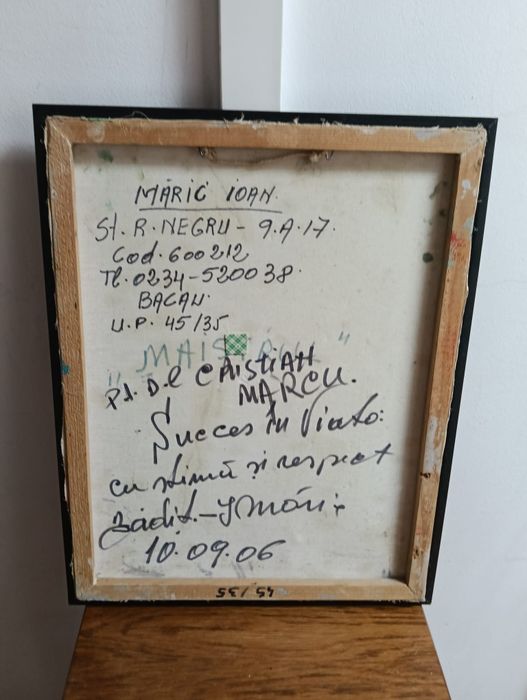 MĂRIC IOAN.
St. R. NEGRU - 9.A.17.
Cod. 600212
Tl. 0234-520038.
BACAU.
U.P. 45/35
"MAIS "
Pt. D.l CRISTIAN
MARCU.
Succes în Viață:
cu stimă și respect
10.09.06
45/35